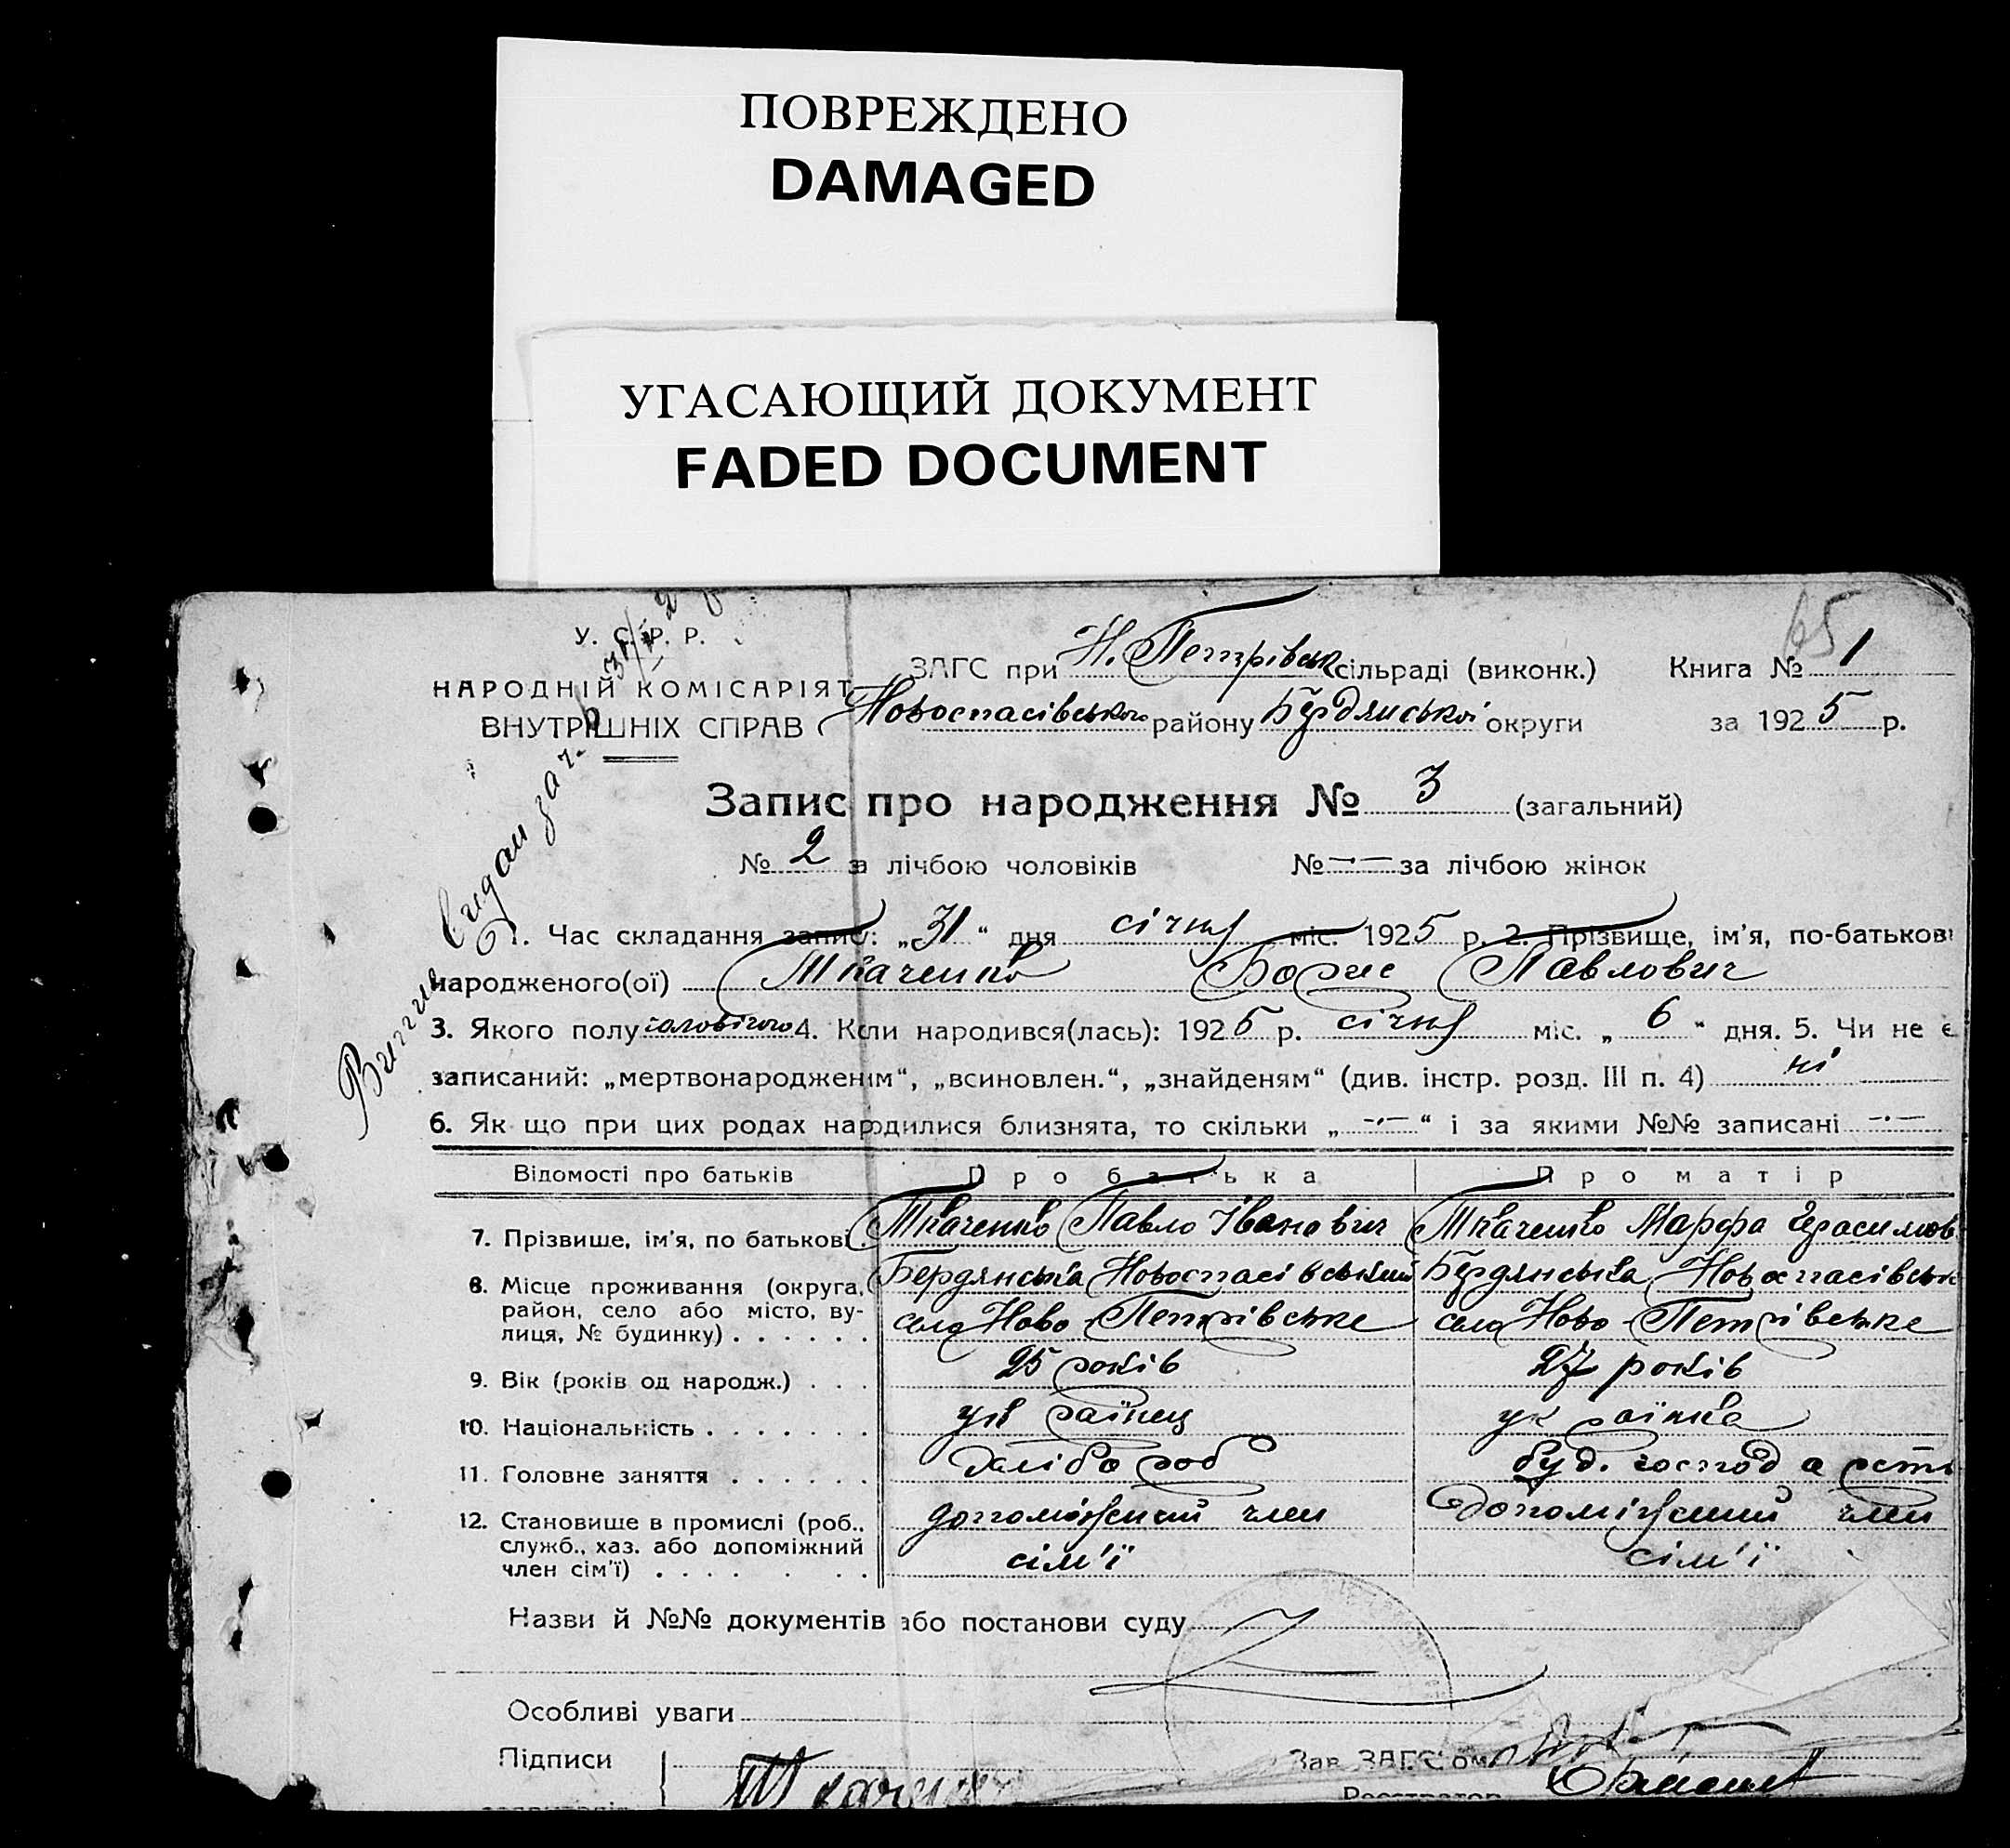 ПОВРЕЖДЕНО
DAMAGED
УГАСАЮЩИЙ ДОКУМЕНТ
FADED DOCUMENT
65
У. С. Р. Р.
НАРОДНІЙ КОМІСАРІЯТ
ВНУТРІШНІХ СПРАВ
ЗАГС при Н. Петрівськ сільраді (виконк.) Книга № 1
Новоспасівського району Бердянської округи за 1925 р.
Запис про народження № 3 (загальний)
№ 2 за лічбою чоловіків № —·— за лічбою жінок
1. Час складання запису: „31“ дня січня міс. 1925 р. 2. Прізвище, ім'я, по-батькові
народженого(ої) Ткаченко Борис Павлович
3. Якого полу чоловічого 4. Коли народився(лась): 1925 р. січня міс. „6“ дня. 5. Чи не є
записаний: „мертвонародженім“, „всиновлен.“, „знайденям“ (див. інстр. розд. III п. 4) ні
6. Як що при цих родах народилися близнята, то скільки „—·—“ і за якими №№ записані —·—
Відомості про батьків Про батька Про матір
7. Прізвише, ім'я, по батькові. Ткаченко Павло Іванович Ткаченко Марфа Герасимов
8. Місце проживання (округа, район, село або місто, ву-лиця, № будинку) . . . . . . Бердянська Новоспасівський Бердянська Новоспасівськ
село Ново-Петрівське село Ново-Петрівське
9. Вік (років од народж.) . . . 25 років 27 років
10. Національність . . . . . . . українец українка
11. Головне заняття . . . . . . хлібороб буд. господарств
12. Становише в промислі (роб., служб., хаз. або допоміжний член сім'ї) . . . . . . . допоміжний член допоміжний член
сім'ї сім'ї
Назви й №№ документів або постанови суду
Особливі уваги
Підписи Ткаченко Зав. ЗАГС'ом
Реєстратор